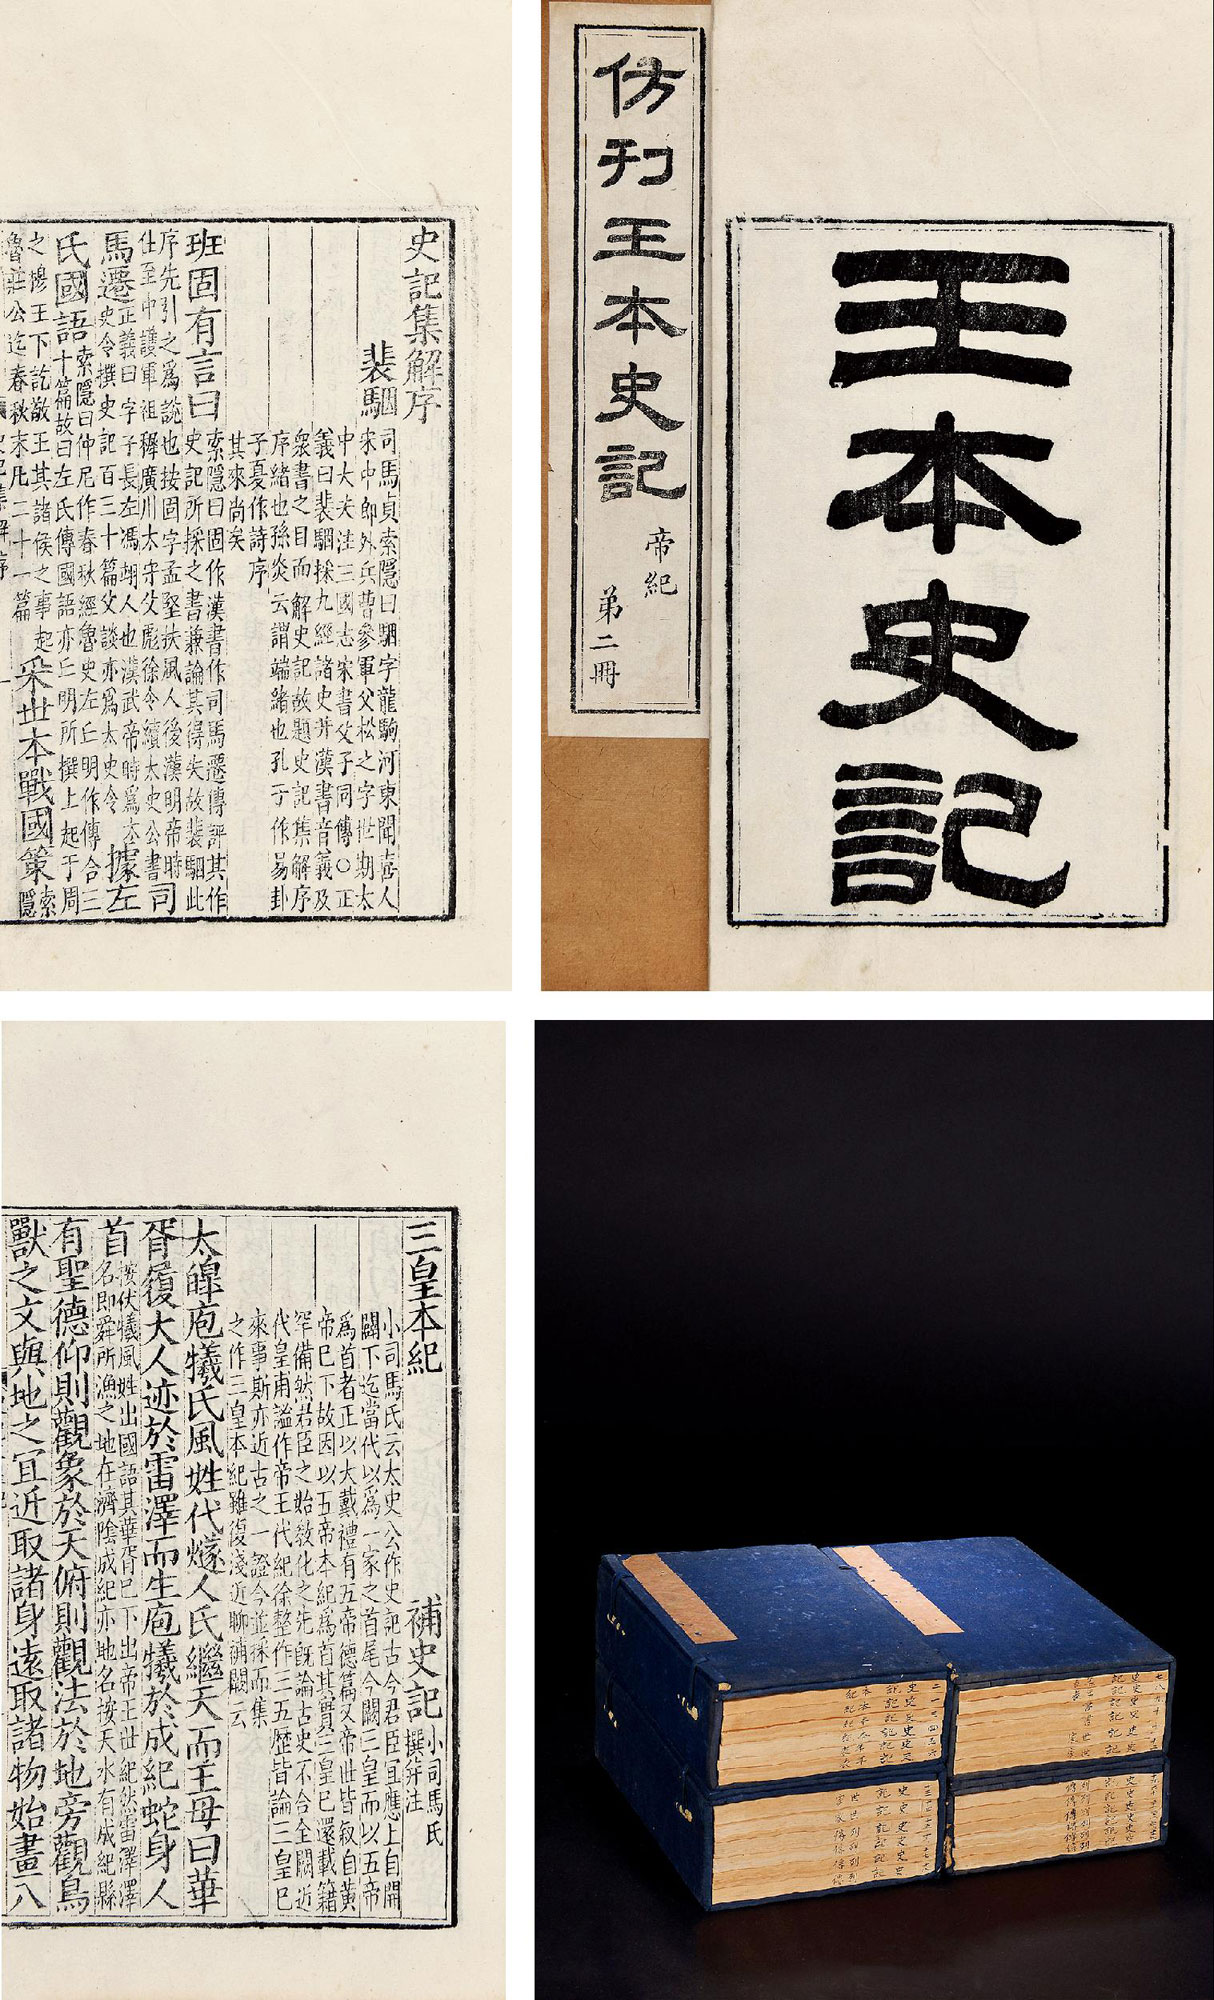 王本史記
仿刊王本史記
帝紀
第二冊
史記集解序
裴駰
司馬貞索隱曰駰字龍駒河東聞喜人
宋中郎外兵曹參軍父松之字世期太
中大夫注三國志宋書父子同傳○正
義曰裴駰採九經諸史并漢書音義及
衆書之目而解史記故題史記集解序
序緒也孫炎云謂端緒也孔子作易卦
子夏作詩序
其來尚矣
班固有言曰
索隱曰固作漢書作司馬遷傳評其作
史記所採之書兼論其得失故裴駰此
序先引之爲說也按固字孟堅扶風人後漢明帝時
仕至中護軍祖穉廣川太守父彪徐令續太史公書
司
馬遷
正義曰字子長左馮翊人也漢武帝時爲太
史令撰史記百三十篇父談亦爲太史令
據左
氏國語
索隱曰仲尼作春秋經魯史左丘明作傳合三
十篇故曰左氏傳國語亦丘明所撰上起于周
之穆王下訖敬王其諸侯之事起
魯莊公迄春秋末凡二十一篇
采世本戰國策
索
隱
三皇本紀
補史記
小司馬氏
撰并注
小司馬氏云太史公作史記古今君臣宜應上自開
闢下迄當代以爲一家之首尾今闕三皇而以五帝
爲首者正以大戴禮有五帝德篇又帝世皆叙自黃
帝已下故因以五帝本紀爲首其實三皇已還載籍
罕備然君臣之始教化之先既論古史不合全闕近
代皇甫謐作帝王代紀徐整作三五歷皆論三皇已
來事斯亦近古之一證今並採而集
之作三皇本紀雖復淺近聊補闕云
太皥庖犧氏風姓代燧人氏繼天而王母曰華
胥履大人迹於雷澤而生庖犧於成紀蛇身人
首
按伏犧風姓出國語其華胥已下出帝王世紀然雷澤澤
名即舜所漁之地在濟陰成紀亦地名按天水有成紀縣
有聖德仰則觀象於天俯則觀法於地旁觀鳥
獸之文與地之宜近取諸身遠取諸物始畫八